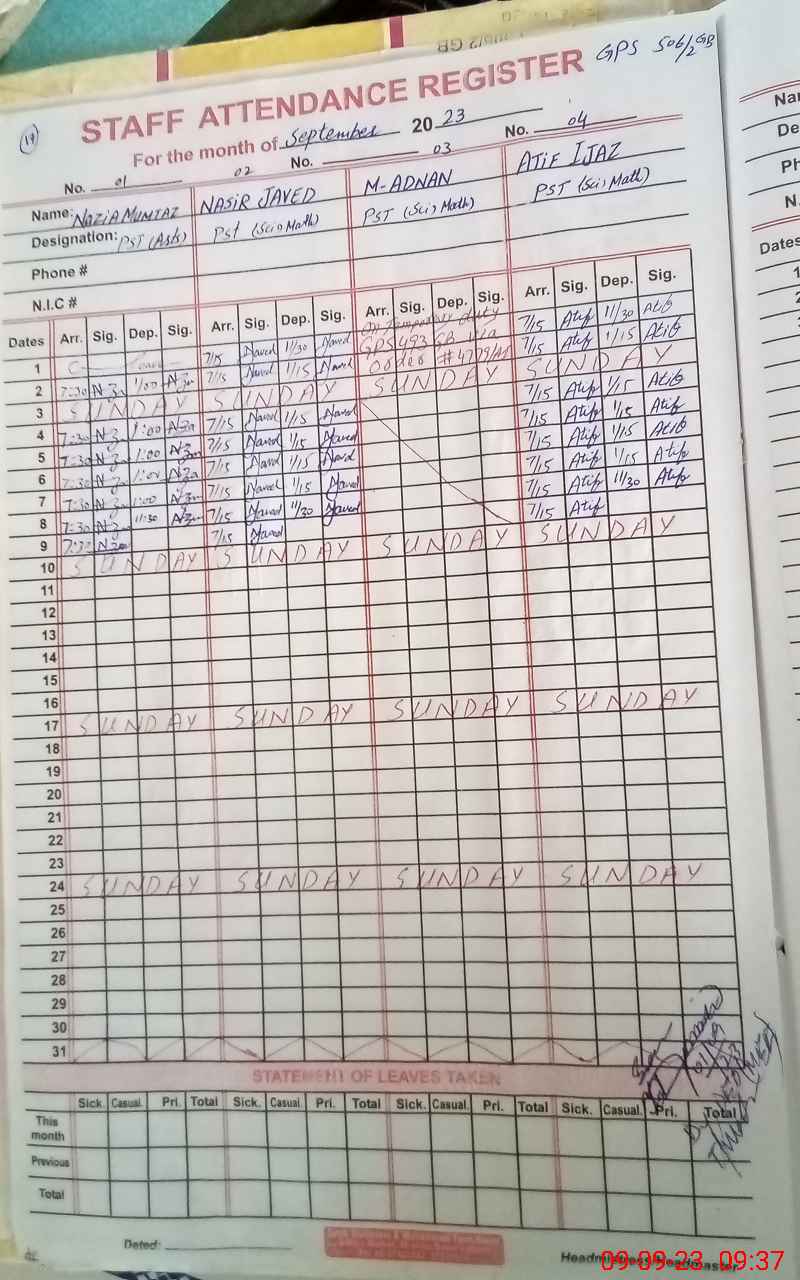 GPS 506/2 GB
19
STAFF ATTENDANCE REGISTER
For the month of September 2023
No. 01 02 No. 03 No. 04
Name: NAZIA MUMTAZ NASIR JAVED M-ADNAN ATIF IJAZ
Designation: PST (Arts) PST (Sci, Math) PST (Sci, Math) PST (Sci, Math)
Phone #
N.I.C #
Dates Arr. Sig. Dep. Sig. Arr. Sig. Dep. Sig. Arr. Sig. Dep. Sig. Arr. Sig. Dep. Sig.
On Temporary duty
GPS 493 GB via
Order # 4729/A1
1 7/15 Javed 11/30 Javed 7/15 Atif 11/30 Atif
2 7:30 1:00 7/15 Javed 1/15 Javed 7/15 Atif 1/15 Atif
3 SUNDAY SUNDAY SUNDAY SUNDAY
4 7:30 1:00 7/15 Javed 1/15 Javed 7/15 Atif 1/15 Atif
5 7:30 1:00 7/15 Javed 1/15 Javed 7/15 Atif 1/15 Atif
6 7:30 1:00 7/15 Javed 1/15 Javed 7/15 Atif 1/15 Atif
7 7:30 1:00 7/15 Javed 1/15 Javed 7/15 Atif 1/15 Atif
8 7:30 11:30 7/15 Javed 11/30 Javed 7/15 Atif 11/30 Atif
9 7:30 7/15 Javed 7/15 Atif
10 SUNDAY SUNDAY SUNDAY SUNDAY
11
12
13
14
15
16
17 SUNDAY SUNDAY SUNDAY SUNDAY
18
19
20
21
22
23
24 SUNDAY SUNDAY SUNDAY SUNDAY
25
26
27
28
29
30
31
STATEMENT OF LEAVES TAKEN
Sick. Casual. Pri. Total Sick. Casual. Pri. Total Sick. Casual. Pri. Total Sick. Casual. Pri. Total
This month
Previous
Total
Dated:
Headmistress/Headmaster
09-09-23 09:37
Dates